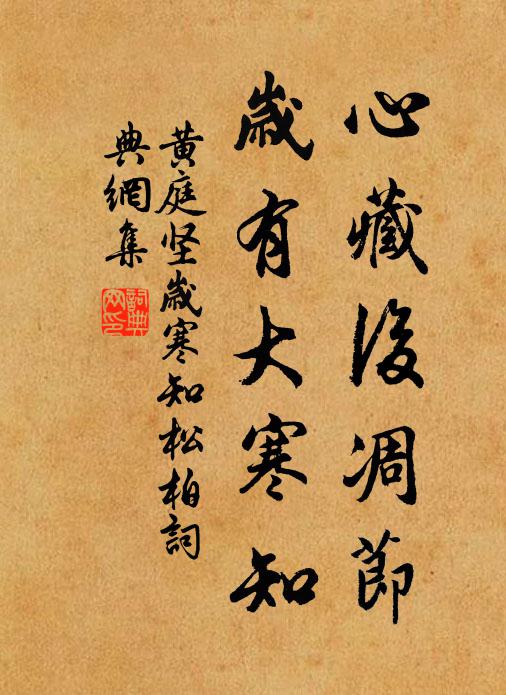 心藏後凋節
歲有大寒知
黃庭坚歲寒知松柏詞
典網集
詞典網印